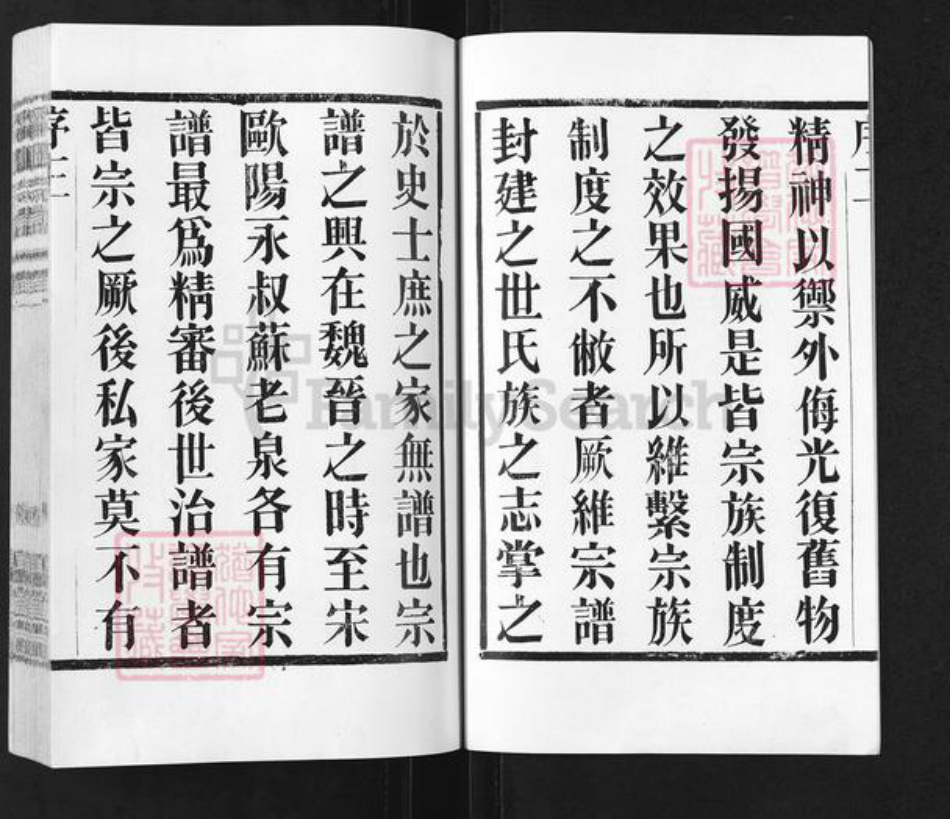 精神以禦外侮光復舊物
發揚國威是皆宗族制度
之效果也所以維繫宗族
制度之不敝者厥維宗譜
封建之世氏族之志掌之
於史士庶之家無譜也宗
譜之興在魏晉之時至宋
歐陽永叔蘇老泉各有宗
譜最爲精審後世治譜者
皆宗之厥後私家莫不有
序三
FamilySearch